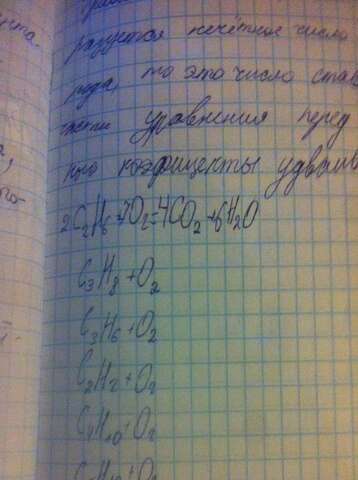 разуются нечётное число
рода, то это число став
части уравнения перед
коэфиценты удваив
2C₂H₆+7O₂=4CO₂+6H₂O
C₃H₈+O₂
C₃H₆+O₂
C₂H₂+O₂
C₄H₁₀+O₂